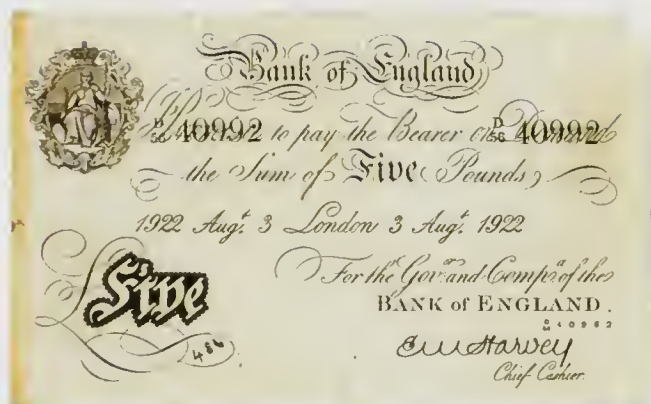 Bank of England
D/56 40992 to pay the Bearer on Demand D/56 40992
the Sum of Five Pounds
1922 Augt. 3 London 3 Augt. 1922
For the Govr. and Compa. of the
BANK of ENGLAND.
Five
486
Chief Cashier.